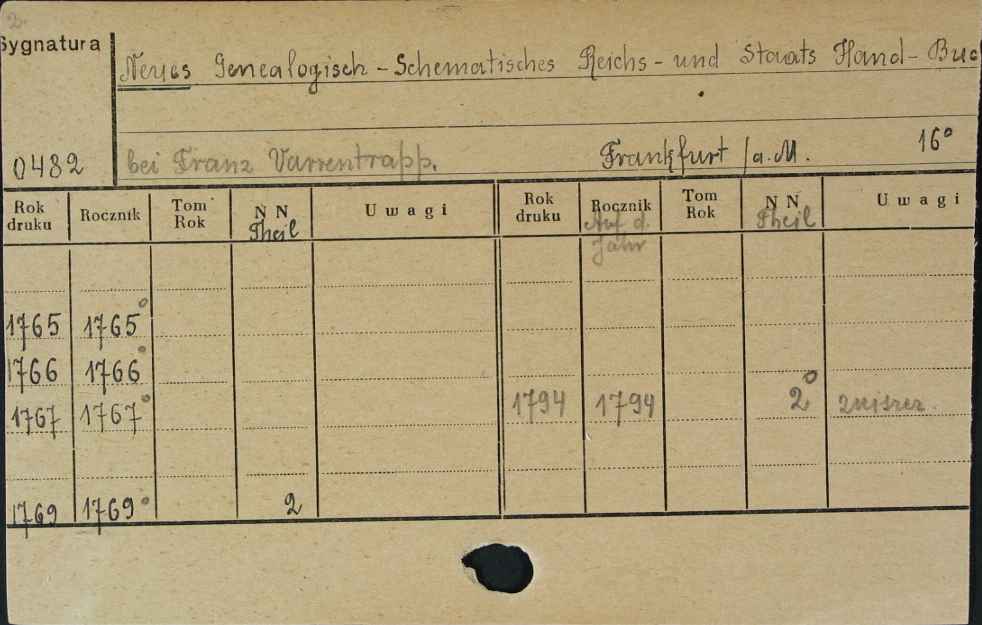 2.
Sygnatura
Neues Genealogisch - Schematisches Reichs - und Staats Hand - Buc
0482
bei Franz Varrentrapp.
Frankfurt /a.M.
16°
Rok druku Rocznik Tom Rok N N Theil Uwagi Rok druku Rocznik Auf d. Jahr Tom Rok N N Theil Uwagi
1765 1765°
1766 1766°
1767 1767° 1794 1794 2°
1769 1769° 2